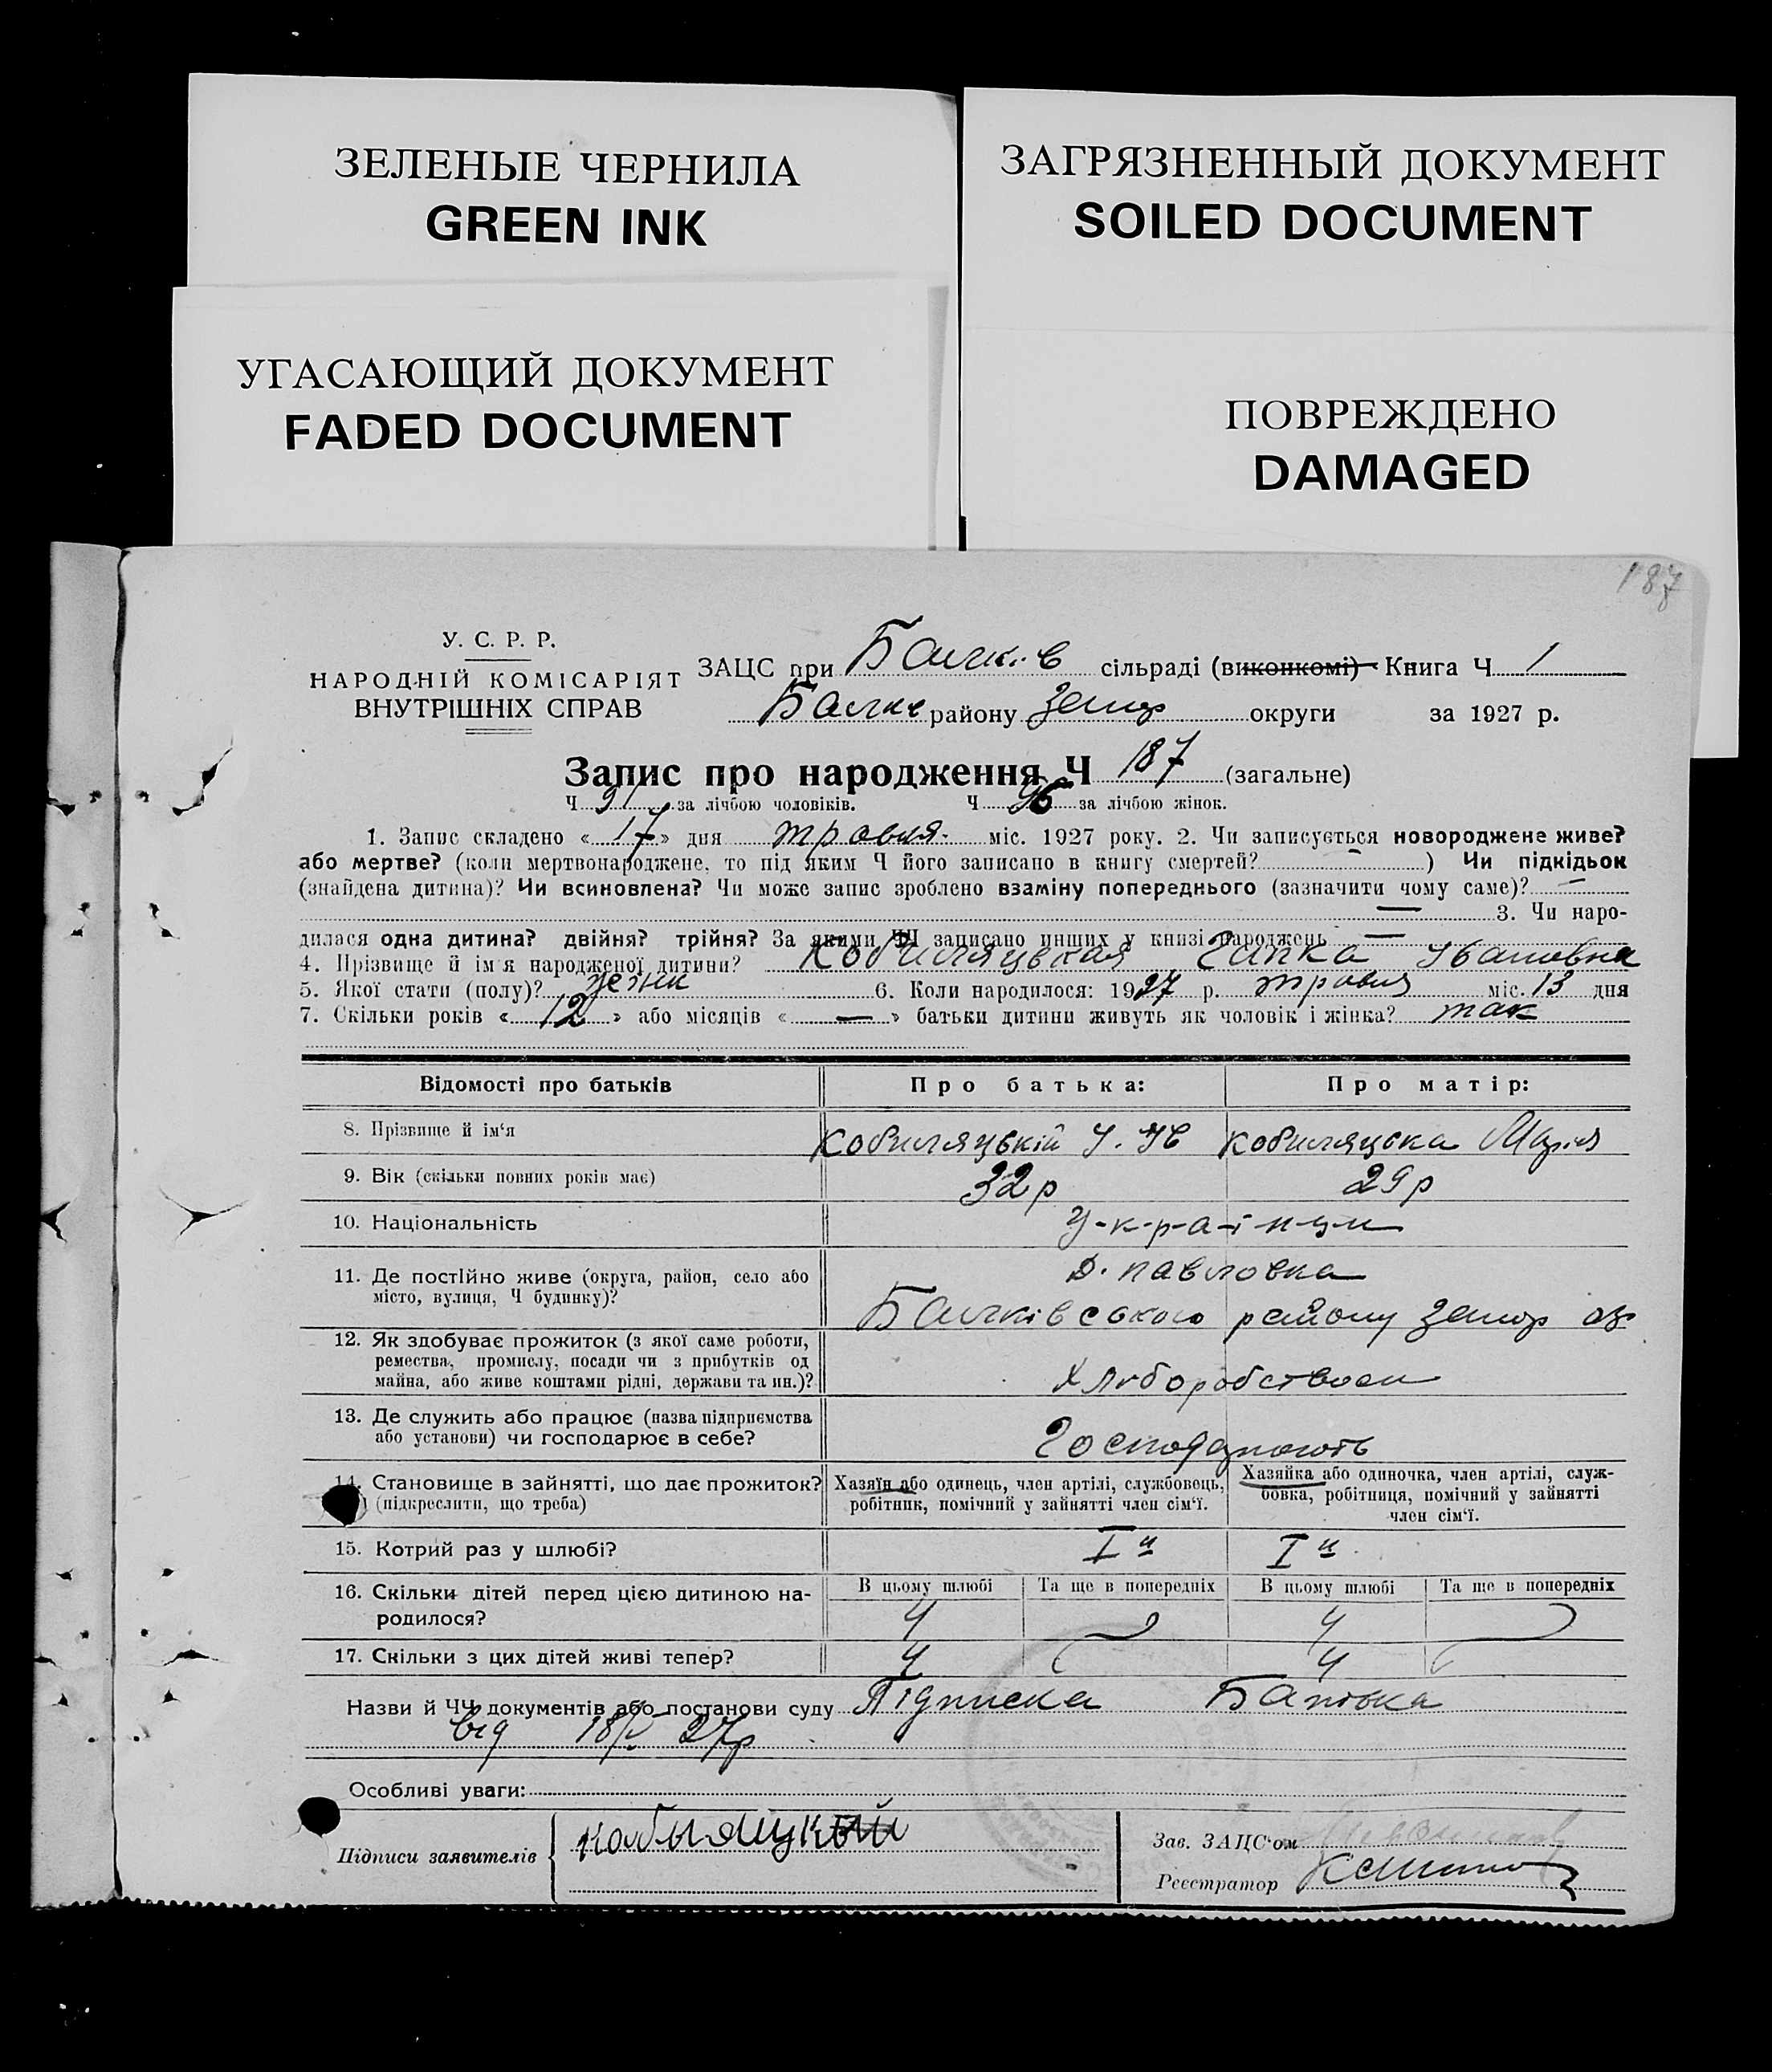 ЗЕЛЕНЫЕ ЧЕРНИЛА
GREEN INK
ЗАГРЯЗНЕННЫЙ ДОКУМЕНТ
SOILED DOCUMENT
УГАСАЮЩИЙ ДОКУМЕНТ
FADED DOCUMENT
ПОВРЕЖДЕНО
DAMAGED
187
У. С. Р. Р.
НАРОДНІЙ КОМІСАРІЯТ
ВНУТРІШНІХ СПРАВ
ЗАЦС при Балків сільраді (виконкомі) Книга Ч 1
Балк району Запор округи за 1927 р.
Запис про народження Ч 187 (загальне)
Ч 91 за лічбою чоловіків. Ч 96 за лічбою жінок.
1. Запис складено « 17 » дня травня міс. 1927 року. 2. Чи записується новороджене живе?
або мертве? (коли мертвонароджене, то під яким Ч його записано в книгу смертей? — ) Чи підкідьок
(знайдена дитина)? Чи всиновлена? Чи може запис зроблено взаміну попереднього (зазначити чому саме)? —
— 3. Чи наро-
дилася одна дитина? двійня? трійня? За якими ЧЧ записано инших у книзі народжень —
4. Прізвище й ім'я народженої дитини? Кобиляцькая Гапка Івановна
5. Якої стати (полу)? 6. Коли народилося: 1927 р. травня міс. 13 дня
7. Скільки років « 12 » або місяців « — » батьки дитини живуть як чоловік і жінка? так
Відомості про батьків
Про батька:
Про матір:
8. Прізвище й ім'я
Кобиляцькій І. Ів
Кобиляцька Марія
9. Вік (скільки повних років має)
32 р
29 р
10. Національність
У-к-р-а-ї-н-ци
11. Де постійно живе (округа, район, село або
місто, вулиця, Ч будинку)?
Павловка
Балківського району Запор ок
12. Як здобуває прожиток (з якої саме роботи,
ремества, промислу, посади чи з прибутків од
майна, або живе коштами рідні, держави та ин.)?
Хліборобством
13. Де служить або працює (назва підприємства
або установи) чи господарює в себе?
Господарюють
14. Становище в зайнятті, що дає прожиток?
(підкреслити, що треба)
Хазяїн або одинець, член артілі, службовець,
робітник, помічний у зайнятті член сім'ї.
Хазяйка або одиночка, член артілі, служ-
бовка, робітниця, помічний у зайнятті
член сім'ї.
15. Котрий раз у шлюбі?
I й
I й
16. Скільки дітей перед цією дитиною на-
родилося?
В цьому шлюбі
Та ще в попередніх
В цьому шлюбі
Та ще в попередніх
4
4
17. Скільки з цих дітей живі тепер?
4
4
Назви й ЧЧ документів або постанови суду Підписка Батька
від 18/V 27р
Особливі уваги:
Підписи заявителів
Зав. ЗАЦС'ом
Реєстратор